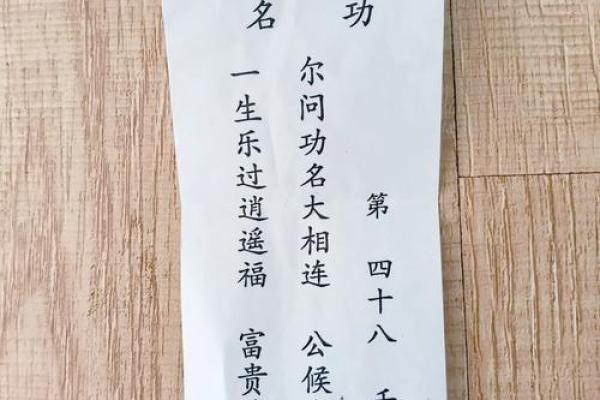 功名
第 四十八
尔问功名大相连 公候
一生乐过逍遥福 富贵